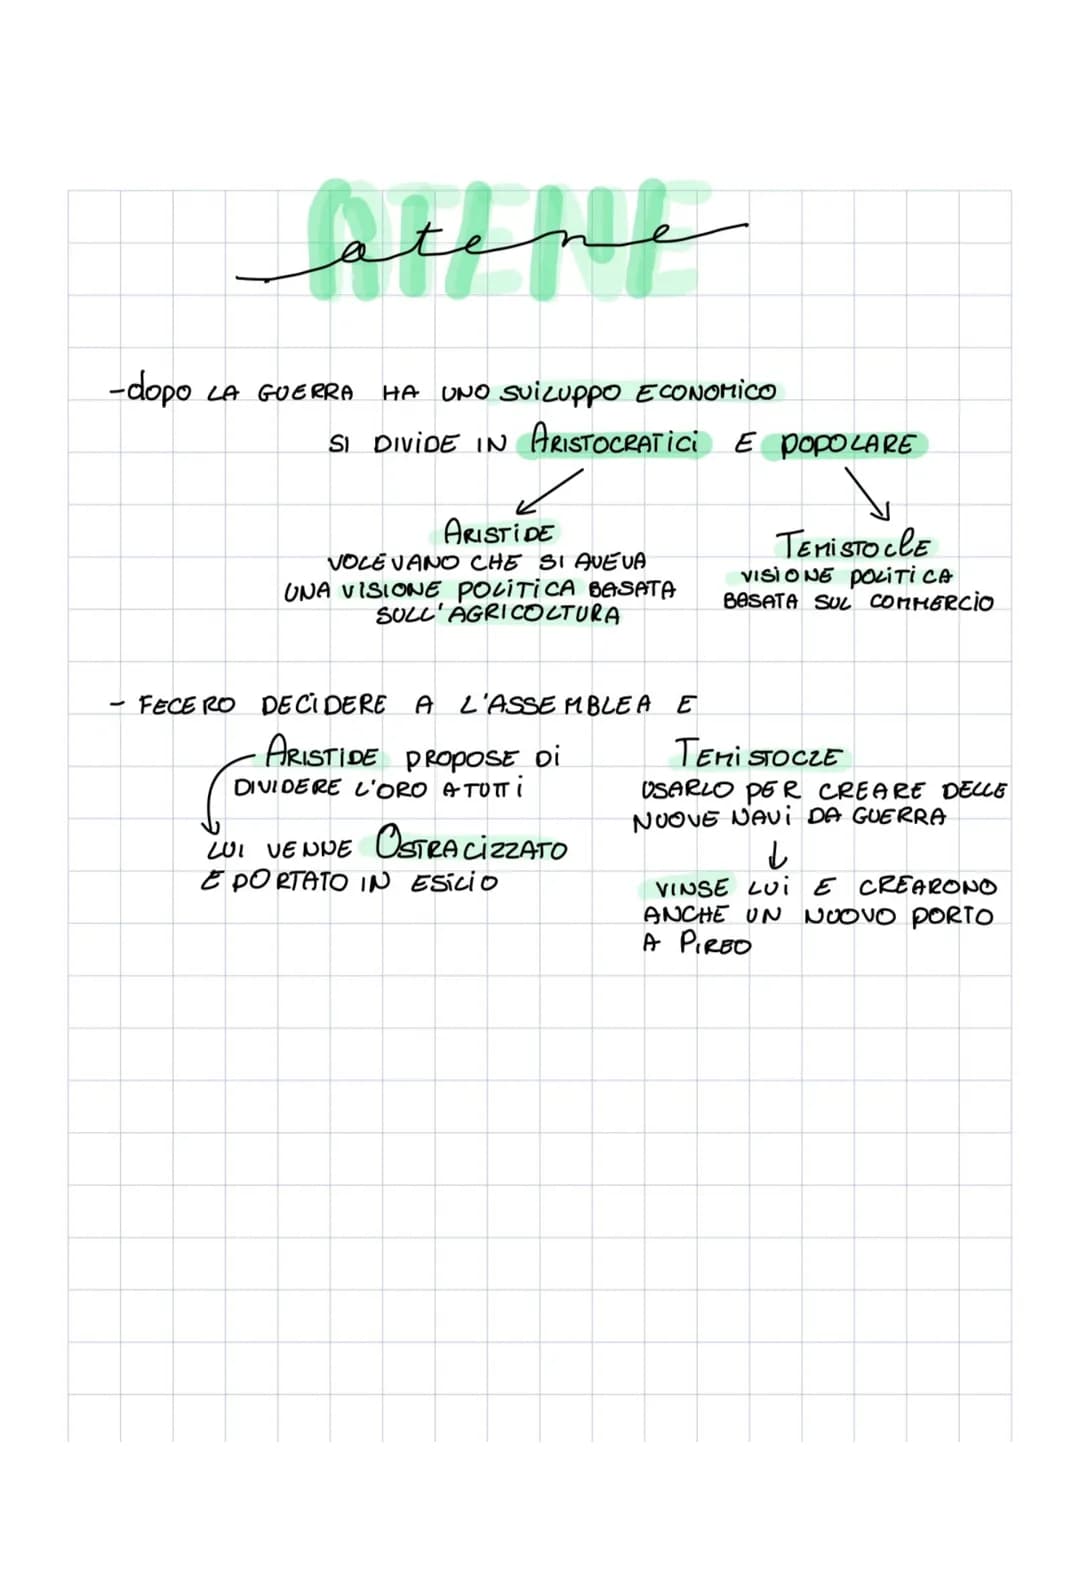 ATENE
atene
-dopo LA GUERRA HA UNO SVILUPPO ECONOMICO
SI DIVIDE IN ARISTOCRATICI E POPOLARE
ARISTIDE
VOLEVANO CHE SI AVEVA
UNA VISIONE POLITICA BASATA
SULL'AGRICOLTURA
TEMISTOCLE
VISIONE POLITICA
BASATA SUL COMMERCIO
- FECERO DECIDERE A L'ASSEMBLEA E
ARISTIDE PROPOSE DI
DIVIDERE L'ORO A TUTTI
LUI VENNE OSTRACIZZATO
E PORTATO IN ESILIO
TEMISTOCLE
USARLO PER CREARE DELLE
NUOVE NAVI DA GUERRA
VINSE LUI E CREARONO
ANCHE UN NUOVO PORTO
A PIREO